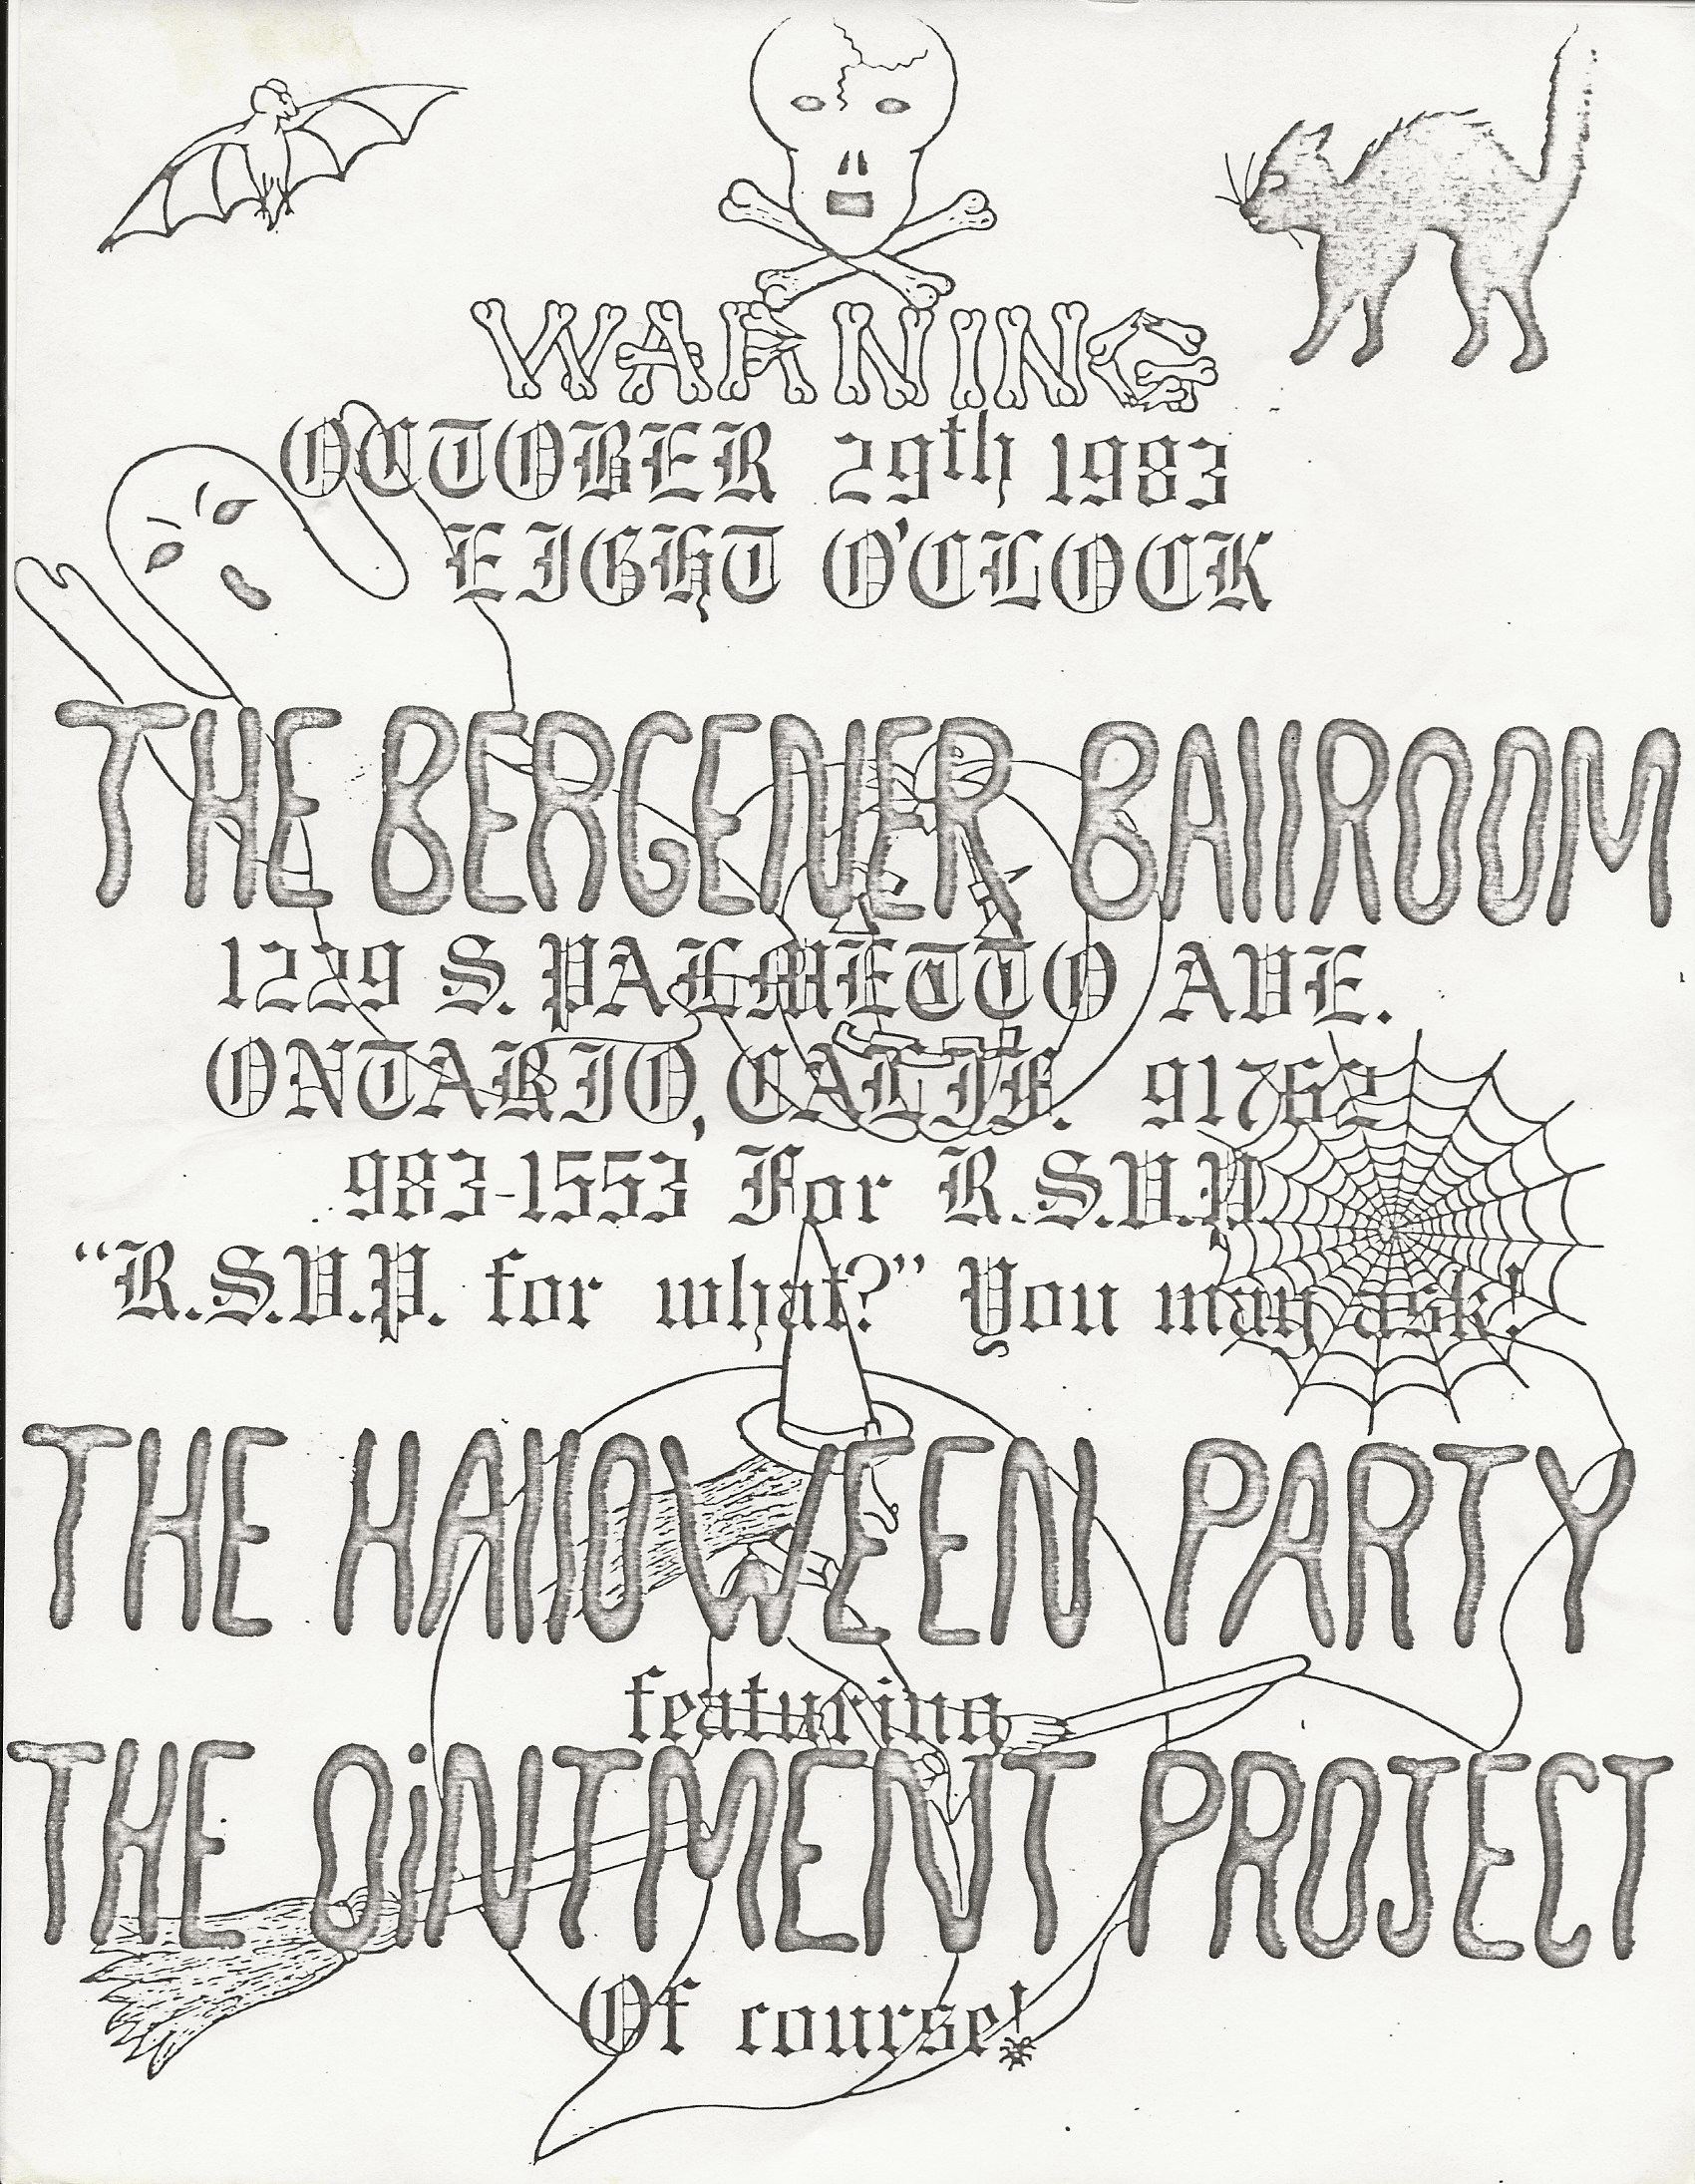 WARNING
OCTOBER 29th 1983
EIGHT O'CLOCK
THE BERGENER BAllROOM
1229 S. PALMETTO AVE.
ONTARIO, CALIF. 91762
983-1553 For R.S.V.P.
“R.S.V.P. for what?” You may ask!
THE HAllOWEEN PARTY
featuring
THE OiNTMENT PROJECT
Of course!